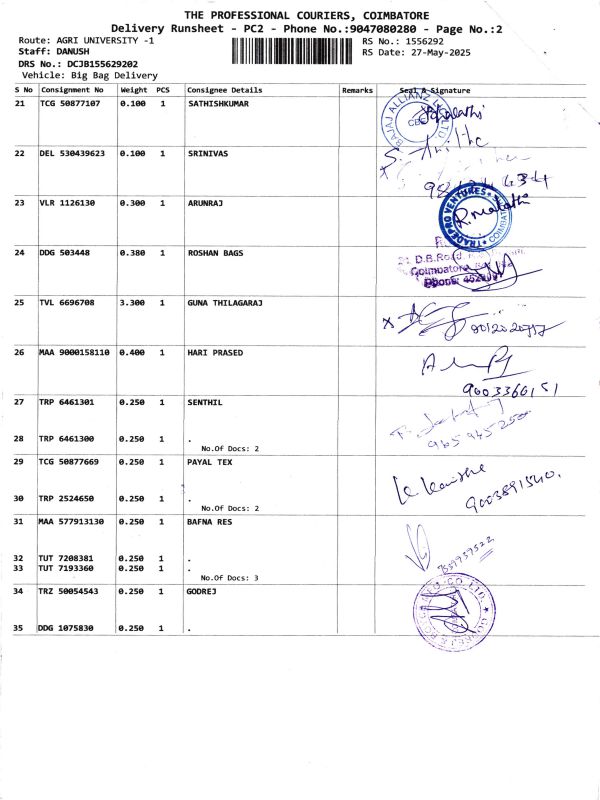 THE PROFESSIONAL COURIERS, COIMBATORE
Delivery Runsheet - PC2 - Phone No.:9047080280 - Page No.:2
Route: AGRI UNIVERSITY -1
RS No.: 1556292
Staff: DANUSH
RS Date: 27-May-2025
DRS No.: DCJB155629202
Vehicle: Big Bag Delivery
S No Consignment No Weight PCS Consignee Details Remarks Seal & Signature
21 TCG 50877107 0.100 1 SATHISHKUMAR
BAJAJ ALLIANZ
22 DEL 530439623 0.100 1 SRINIVAS
23 VLR 1126130 0.300 1 ARUNRAJ
TRADEPRO VENTURES
R. Malathi
24 DDG 503448 0.380 1 ROSHAN BAGS
D.B.Road
Coimbatore
Phone:
25 TVL 6696708 3.300 1 GUNA THILAGARAJ
26 MAA 9000158110 0.400 1 HARI PRASED
9003366151
27 TRP 6461301 0.250 1 SENTHIL
28 TRP 6461300 0.250 1 .
No.Of Docs: 2
29 TCG 50877669 0.250 1 PAYAL TEX
9003891540.
30 TRP 2524650 0.250 1 .
No.Of Docs: 2
31 MAA 577913130 0.250 1 BAFNA RES
32 TUT 7208381 0.250 1 .
33 TUT 7193360 0.250 1 .
No.Of Docs: 3
34 TRZ 50054543 0.250 1 GODREJ
35 DDG 1075830 0.250 1 .